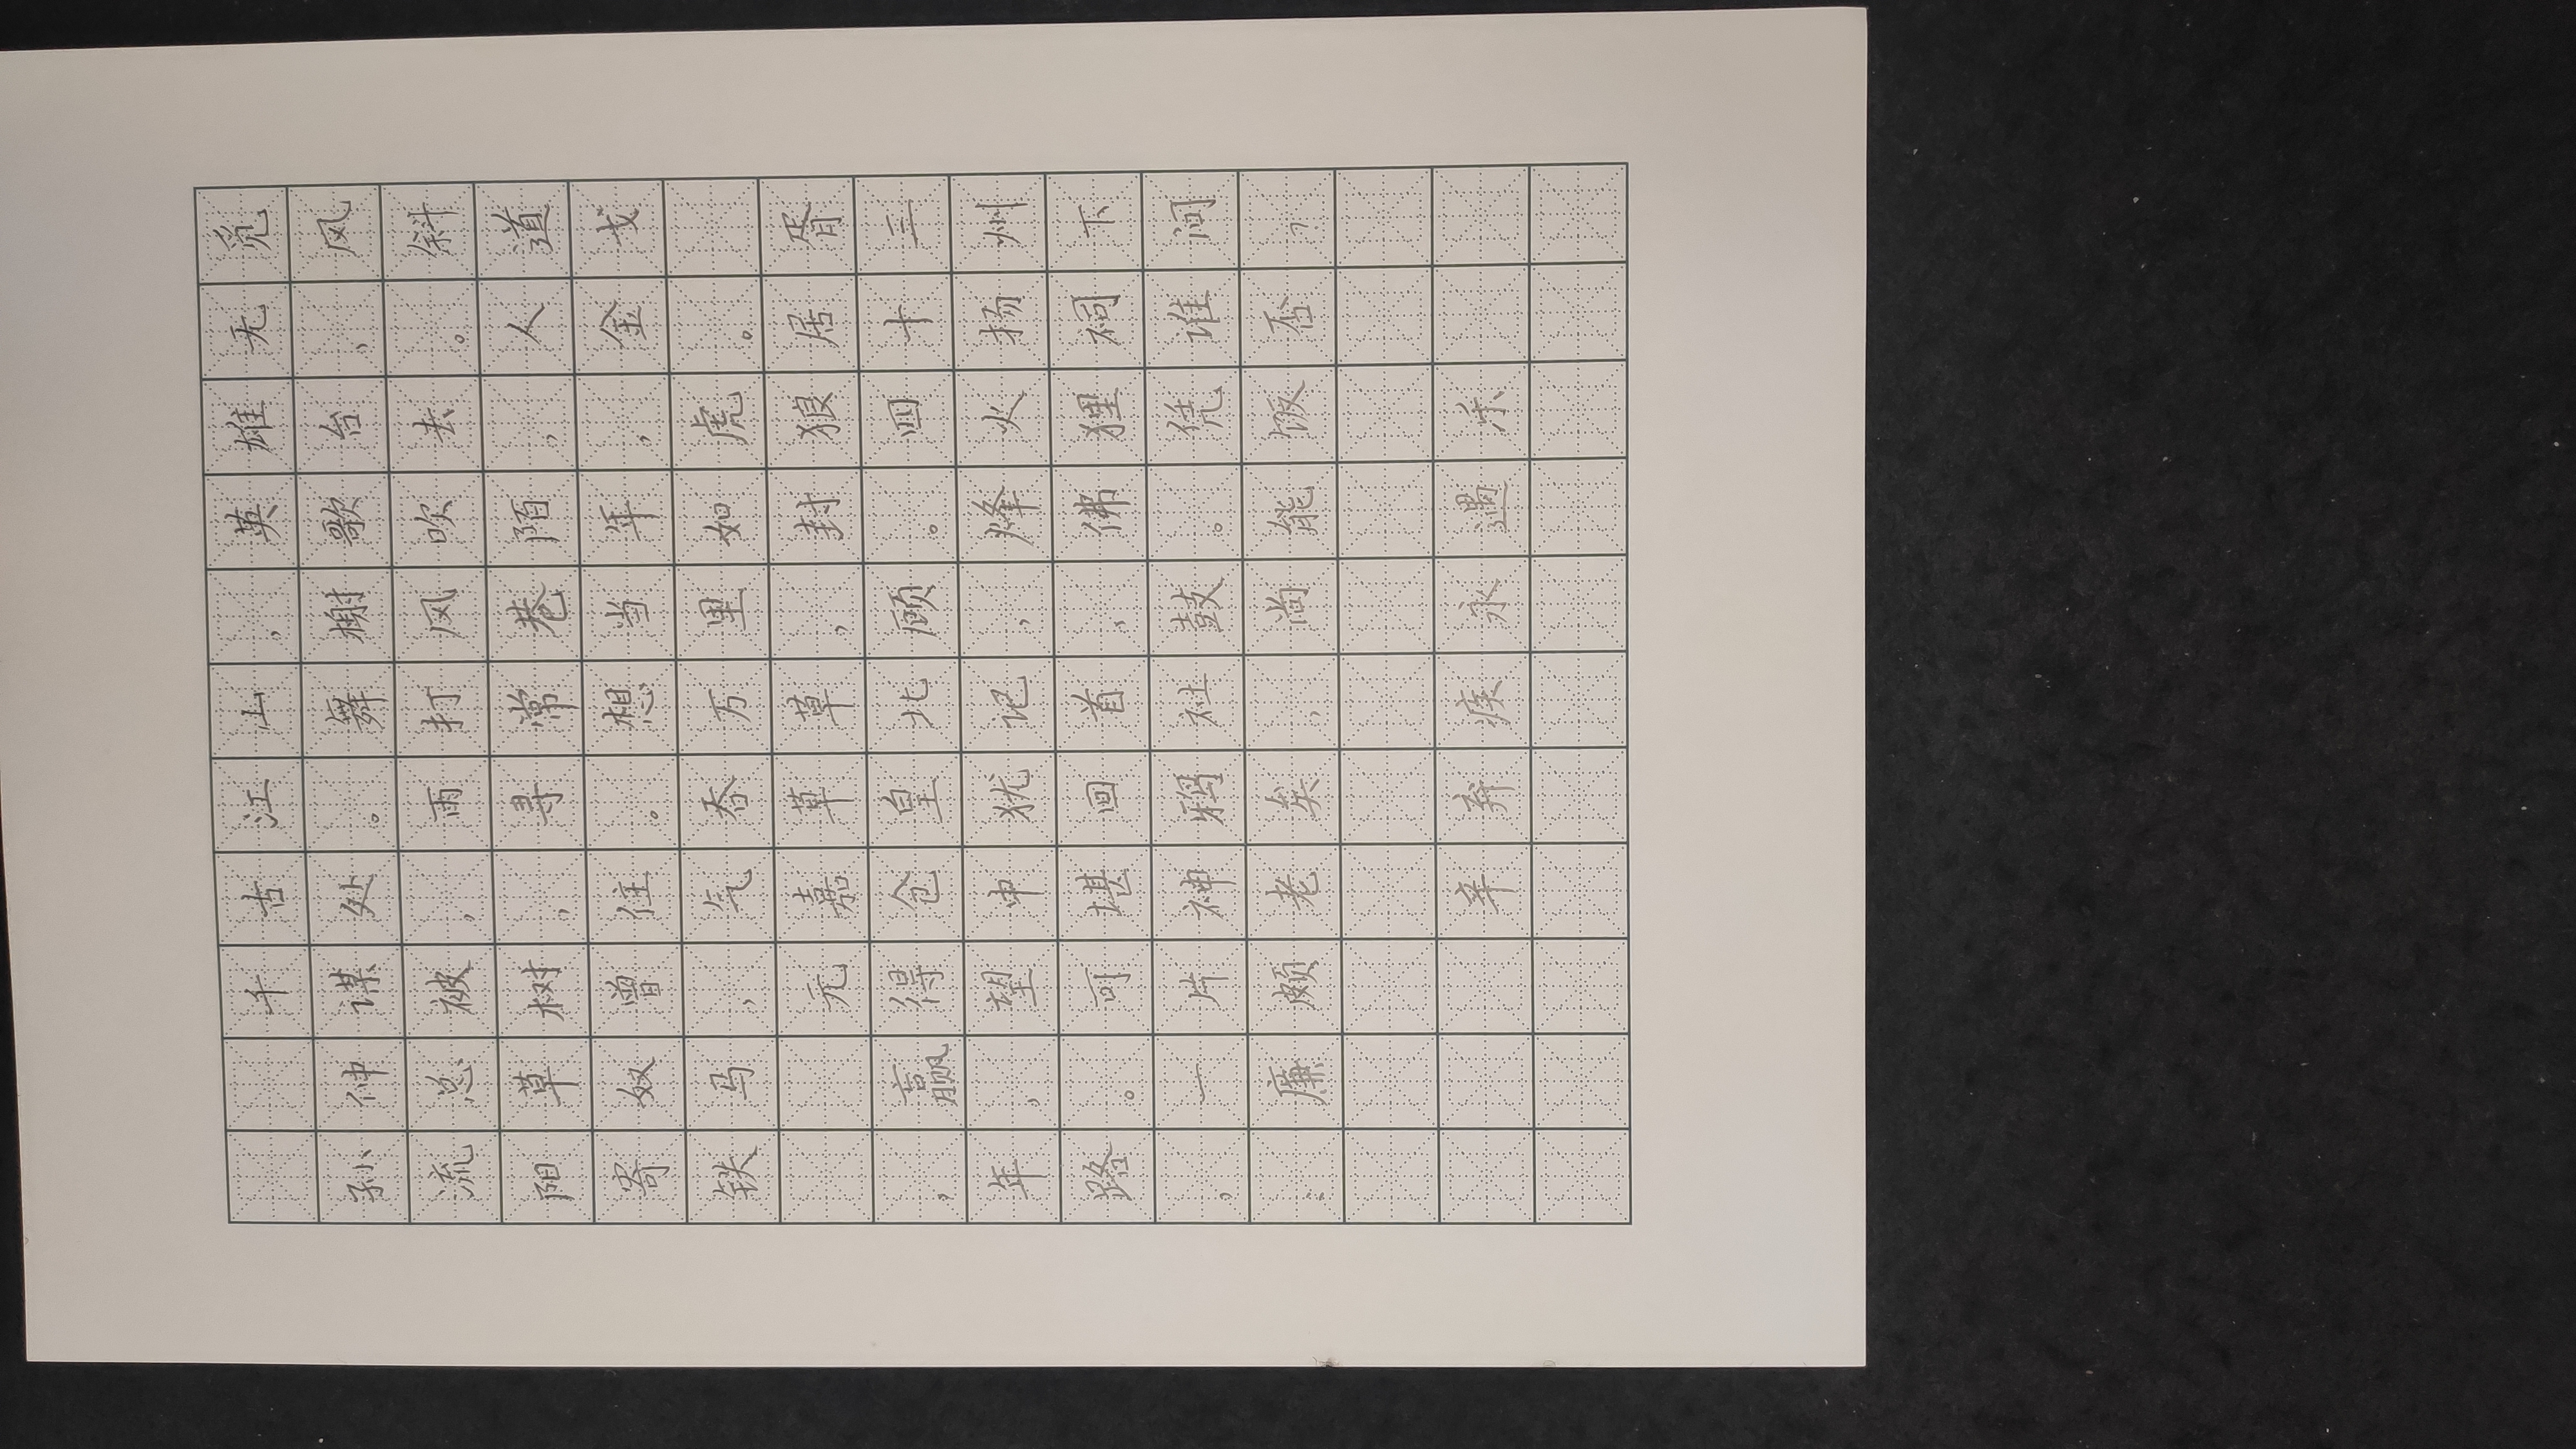 千古江山，英雄无觅
孙仲谋处。舞榭歌台，风
流总被，雨打风吹去。斜
阳草树，寻常巷陌，人道
寄奴曾住。想当年，金戈
铁马，气吞万里如虎。
元嘉草草，封狼居胥
，赢得仓皇北顾。四十三
年，望中犹记，烽火扬州
路。可堪回首，佛狸祠下
，一片神鸦社鼓。凭谁问
：廉颇老矣，尚能饭否，
辛弃疾永遇乐